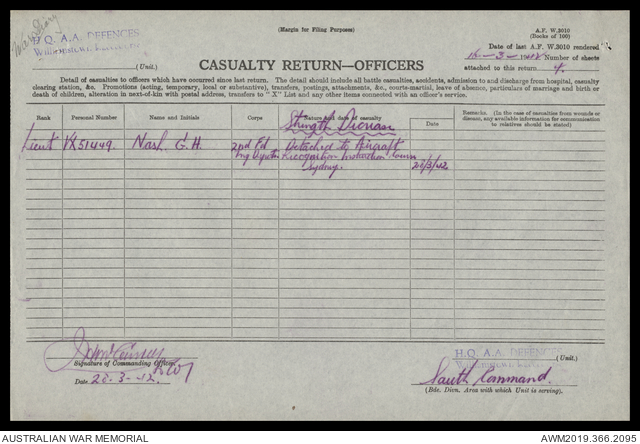 War Diary
(Margin for Filing Purposes)
A.F. W.3010
(Books of 100)
H.Q. A.A. DEFENCES
Williamstown,
(Unit.)
Date of last A.F. W.3010 rendered
16-3-1942 Number of sheets
attached to this return 4.
CASUALTY RETURN—OFFICERS
Detail of casualties to officers which have occurred since last return. The detail should include all battle casualties, accidents, admission to and discharge from hospital, casualty
clearing station, &c. Promotions (acting, temporary, local or substantive), transfers, postings, attachments, &c., courts-martial, leave of absence, particulars of marriage and birth or
death of children, alteration in next-of-kin with postal address, transfers to "X" List and any other items connected with an officer's service.
Rank
Personal Number
Name and Initials
Corps
Nature and date of casualty
Date
Remarks. (In the case of casualties from wounds or
disease, any available information for communication
to relatives should be stated)
Strength
Lieut VX51449. Nash G.H. 2nd Fd Detached to Aircraft
Recognition Instruction Course
Sydney. 20/3/42
Signature of Commanding Officer
Date 20-3-42.
H.Q. A.A. DEFENCES
Williamstown,
(Unit.)
South Command.
(Bde. Divn. Area with which Unit is serving).
AUSTRALIAN WAR MEMORIAL
AWM2019.366.2095